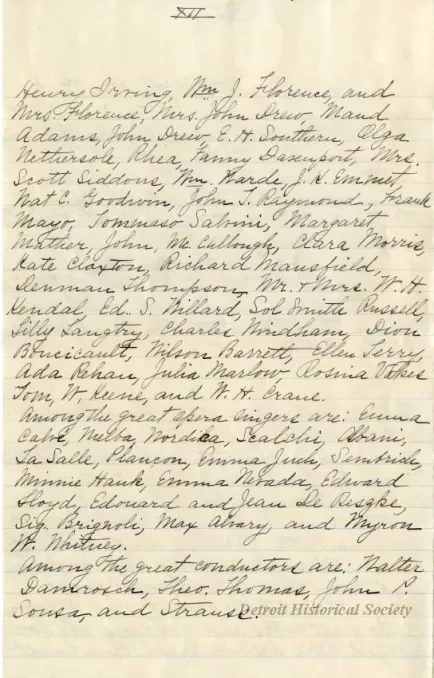 XII
Henry Irving, Wm J. Florence, and
Mrs. Florence, Mrs. John Drew, Maud
Adams, John Drew, E. H. Southern, Olga
Nethersole, Rhea, Fanny Davenport, Mrs.
Scott Siddons, Wm. Warde, J. K. Emmet,
Nat C. Goodwin, John T. Raymond, Frank
Mayo, Tommaso Salvini, Margaret
Mather, John Mc Cullough, Clara Morris,
Kate Claxton, Richard Mansfield,
Denman Thompson, Mr. + Mrs. W. H.
Kendal, Ed. S. Willard, Sol Smith Russell,
Lilly Langtry, Charles Windham, Dion
Boucicault, Wilson Barrett, Ellen Terry,
Ada Rehan, Julia Marlow Rosina Vokes
Tom, W, Keene, and W. H. Crane.
Among the great opera singers are: Emma
Calvé, Melba, Nordica, Scalchi, Albani,
La Salle, Plancon, Emma Juch, Sembrich,
Minnie Hauk, Emma Nevada, Edward
Lloyd, Edouard and Jean De Reszke,
Sig. Brignoli, Max Alvary, and Myron
W. Whitney.
Among the great conductors are: Walter
Damrosch, Theo. Thomas, John P.
Sousa, and Strauss.
Detroit Historical Society